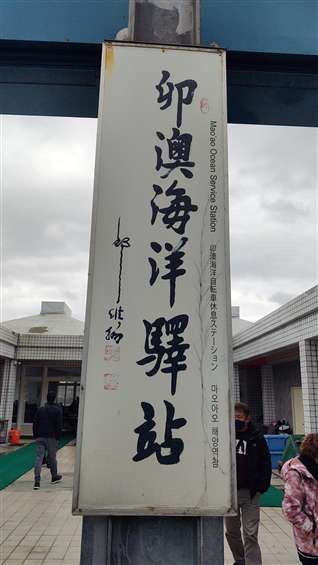 卯澳海洋驛站
Mao'ao Ocean Service Station 卯澳海洋自転車休息ステーション 마오아오 해양역참